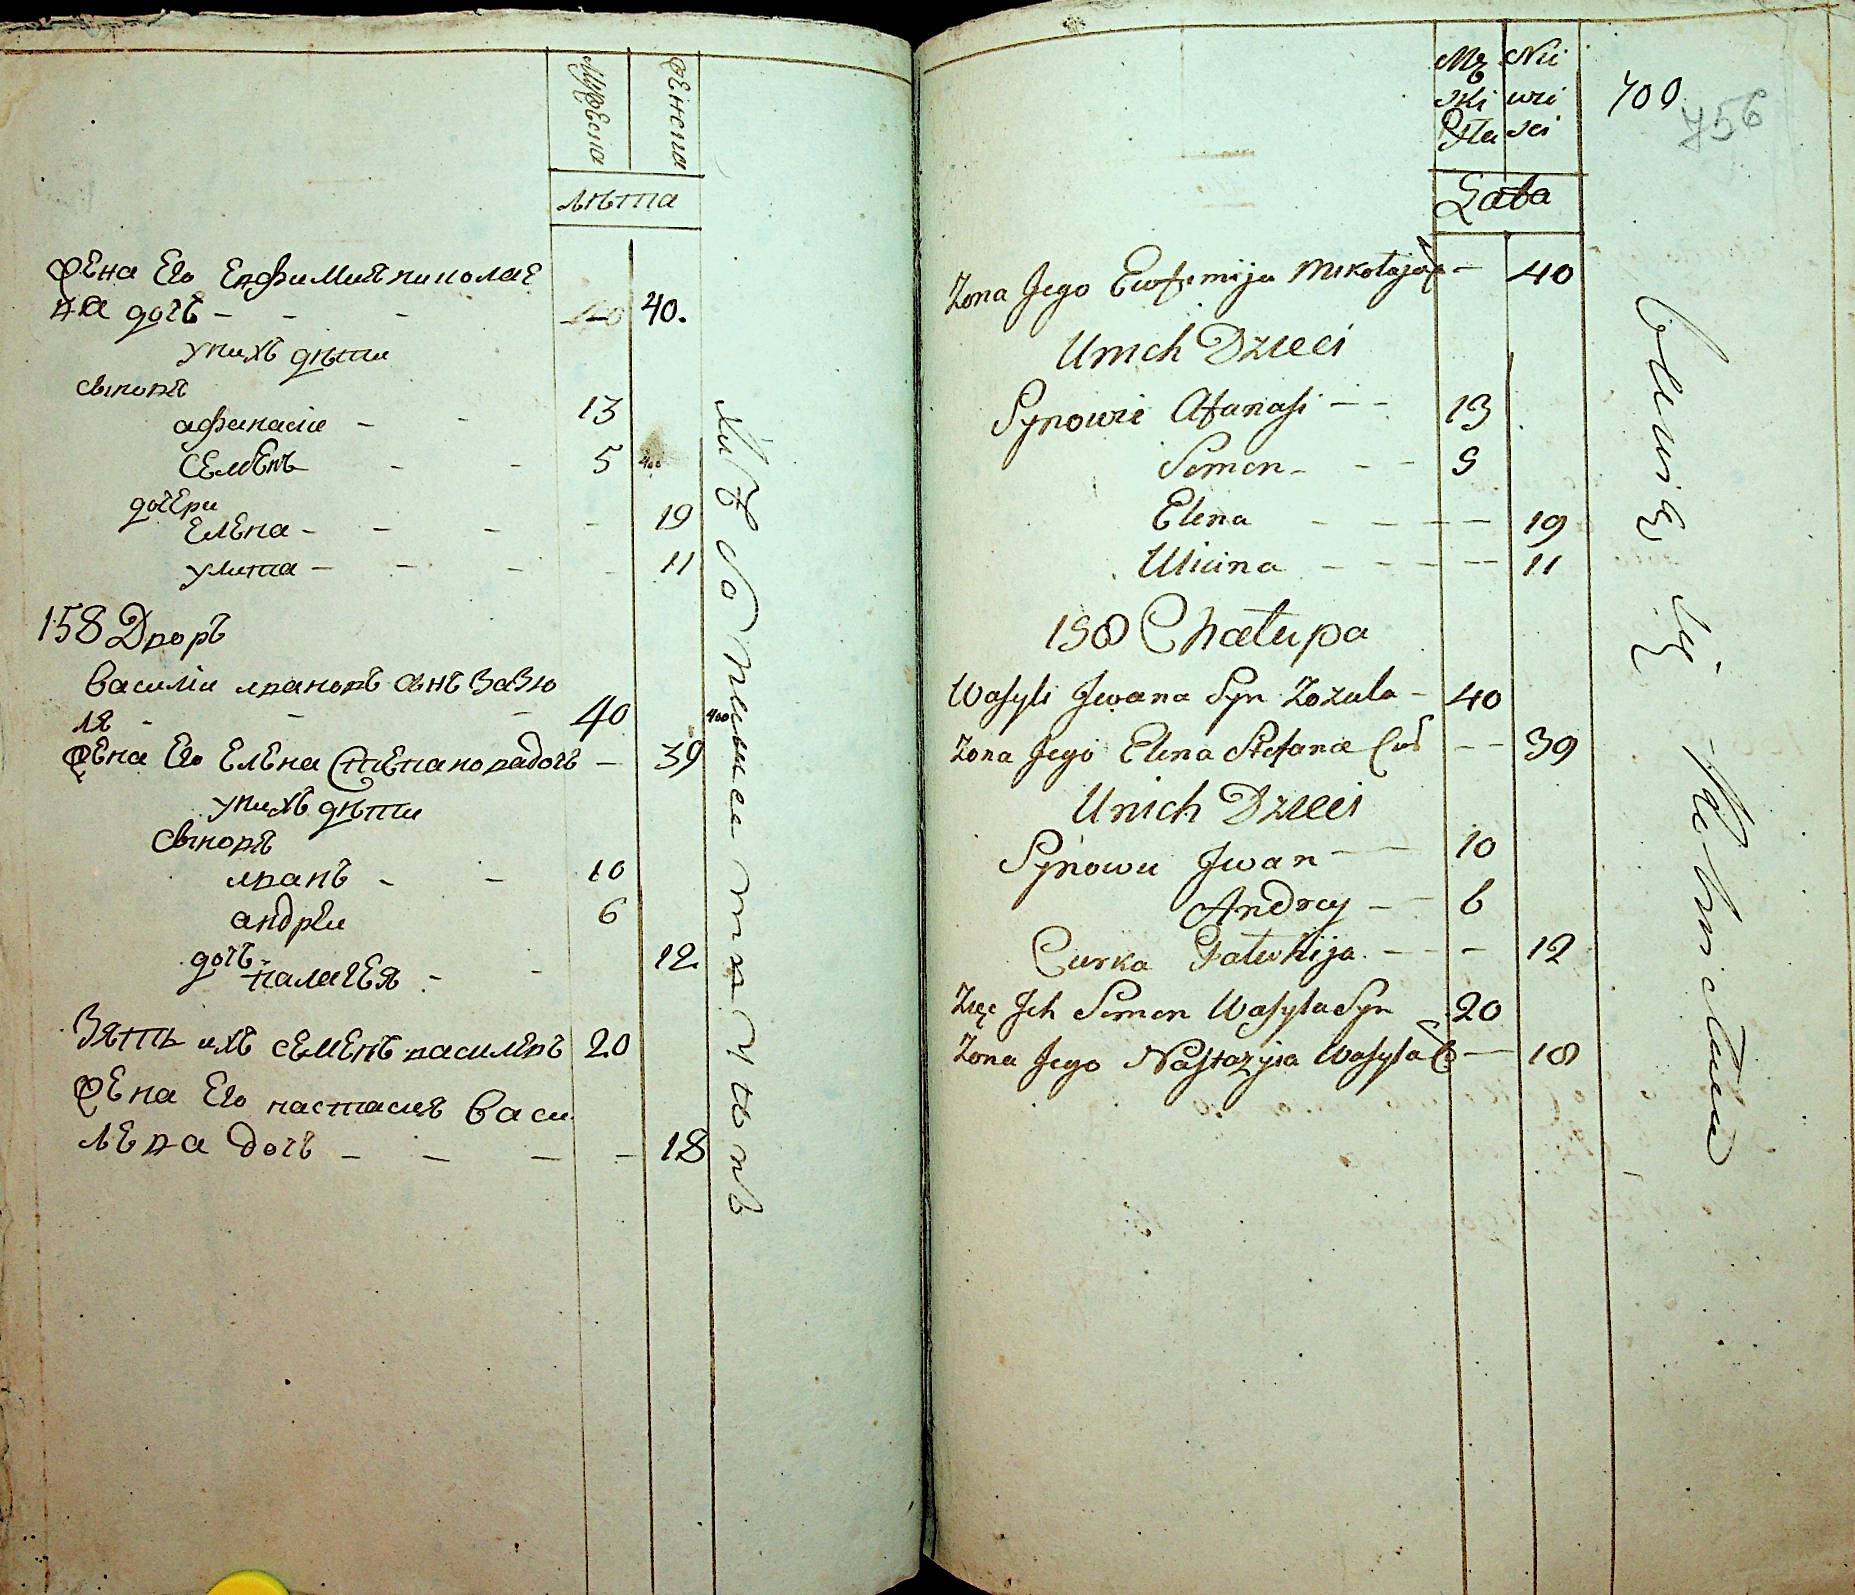 Мужеска
женска
лѣта
жена Его Евфимия николае
ва дочь - - - 40.
у них дѣти
сыновя
афанасіи - - 13
Семенъ - - 5
дочери
Елена - - - - 19
улита - - - - 11
158 Дворъ
Василіи ивановъ сынъ Зазю
ля - - - 40
жена Его Елена Степанова дочь - 39
у нихъ дѣти
Сыновя
иванъ - - 10
андреи 6
дочь
палагея - - 12
Зять ихъ семенъ василевъ 20
жена Его настасия Васи
лева дочь - - - - 18
Mę Nie
ski wie
Płu sci
Lata
700
756
Zona Jego Ewfemija Mikołaja - 40
Unich Dzieci
Synowie Afanasi - - 13
Semen - - - 5
Elena - - - - 19
Ulicina - - - - 11
158 Chałupa
Wasyli Jwana Syn Zozula - 40
Zona Jego Elena Stefana Cuś - - 39
Unich Dzieci
Synowu Jwan - - 10
Andrey - - 6
Curka - - - 12
Zięc Jch Semen Wasyla Syn 20
Zona Jego Nastazyia Wasyla C - 18